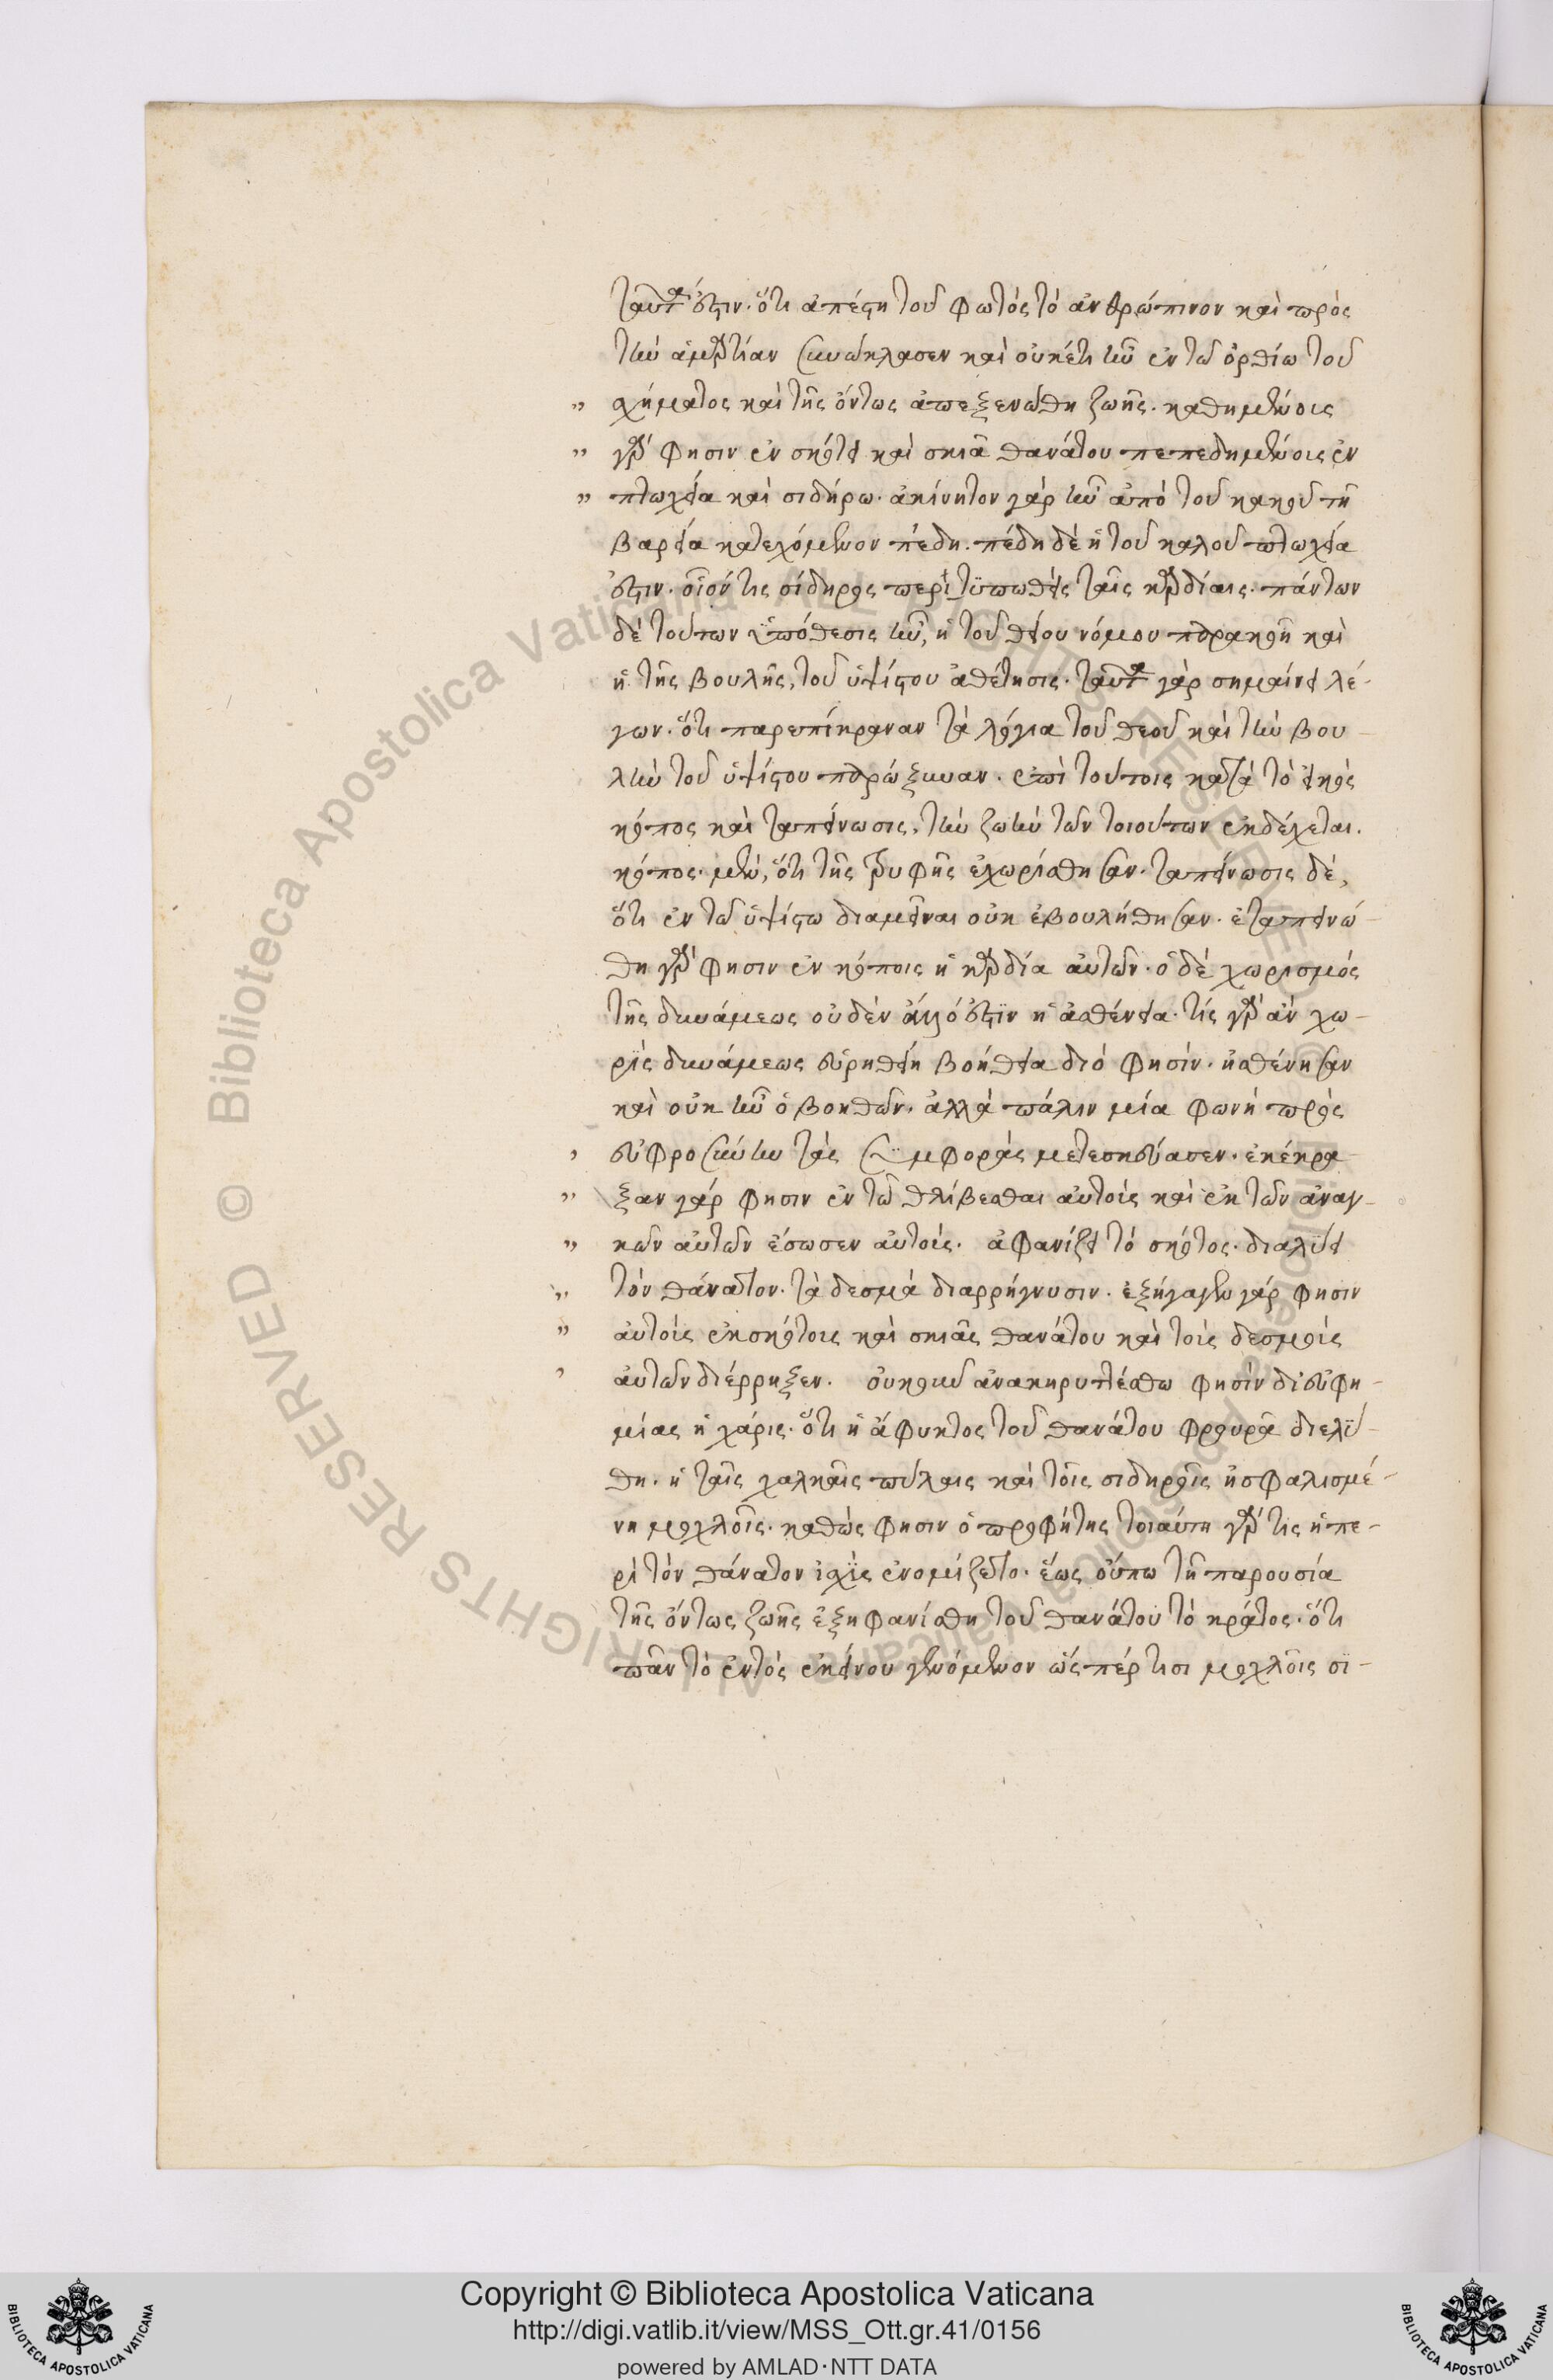 ταῦτά ἐστιν. ὅτι ἀπέστη τοῦ φωτὸς τὸ ἀνθρώπινον καὶ πρὸς
τὴν ἁμαρτίαν συνώκλασεν καὶ οὐκέτι ἦν ἐν τῷ ὀρθίῳ τοῦ
σχήματος καὶ τῆς ὄντως ἀπεξενώθη ζωῆς. καθημένοις
γάρ φησιν ἐν σκότει καὶ σκιᾷ θανάτου πεπεδημένοις ἐν
πτωχείᾳ καὶ σιδήρῳ. ἀκίνητον γὰρ ἦν ἀπὸ τοῦ κακοῦ τῇ
βαρείᾳ κατεχόμενον πέδῃ. πέδη δὲ ἡ τοῦ καλοῦ πτωχεία
ἐστιν. οἷόν τις σίδηρος περϊτϋπωθεὶς ταῖς καρδίαις. πάντων
δὲ τούτων ὑπόθεσις ἦν, ἡ τοῦ θείου νόμου παρακοὴ καὶ
ἡ τῆς βουλῆς, τοῦ ὑψίστου ἀθέτησις. ταῦτα γὰρ σημαίνει λέ-
γων. ὅτι παρεπίκραναν τὰ λόγια τοῦ θεοῦ καὶ τὴν βου-
λὴν τοῦ ὑψίστου παρώξυναν. ἐπὶ τούτοις κατὰ τὸ εἰκὸς
κόπος καὶ ταπείνωσις, τὴν ζωὴν τῶν τοιούτων ἐκδέχεται.
κόπος μὲν, ὅτι τῆς τρυφῆς ἐχωρίσθησαν. ταπείνωσις δὲ,
ὅτι ἐν τῷ ὑψίστῳ διαμεῖναι οὐκ ἐβουλήθησαν. ἐταπεινώ-
θη γάρ φησιν ἐν κόποις ἡ καρδία αὐτῶν. ὁ δὲ χωρισμὸς
τῆς δυνάμεως οὐδὲν ἄλλό ἐστϊν ἢ ἀσθένεια. τίς γὰρ ἂν χω-
ρϊς δυνάμεως εὑρηθείη βοήθεια διό φησίν. ἠσθένησαν
καὶ οὐκ ἦν ὁ βοηθῶν. ἀλλὰ πάλιν μία φωνὴ πρὸς
εὐφροσύνην τὰς συμφορὰς μετεσκεύασεν. ἐκέκρα-
ξαν γάρ φησιν ἐν τῷ θλίβεσθαι αὐτοὺς καὶ ἐκ τῶν ἀναγ-
κῶν αὐτῶν ἔσωσεν αὐτοὺς. ἀφανίζει τὸ σκότος. διαλύει
τὸν θάνατον. τὰ δεσμὰ διαρρήγνυσιν. ἐξήγαγεν γάρ φησιν
αὐτοὺς ἐκ σκότους καὶ σκιᾶς θανάτου καὶ τοὺς δεσμοὺς
αὐτῶν διέρρηξεν. οὐκοῦν ἀνακηρυττέσθω φησὶν δι' εὐφη-
μίας ἡ χάρις. ὅτι ἡ ἄφυκτος τοῦ θανάτου φρουρὰ διελύ-
θη. ἡ ταῖς χαλκαῖς πύλαις καὶ τοῖς σιδηροῖς ἠσφαλισμέ-
νη μοχλοῖς. καθώς φησιν ὁ προφήτης τοιαύτη γάρ τις ἡ πε-
ρὶ τὸν θάνατον ἰσχὺς ἐνομίζετο. ἕως οὔπω τῇ παρουσίᾳ
τῆς ὄντως ζωῆς ἐξηφανίσθη τοῦ θανάτου τὸ κράτος. ὅτι
πᾶν τὸ ἐντὸς ἐκείνου γενόμενον ὥσπέρ τισι μοχλοῖς σϊ-
Copyright © Biblioteca Apostolica Vaticana
http://digi.vatlib.it/view/MSS_Ott.gr.41/0156
powered by AMLAD·NTT DATA